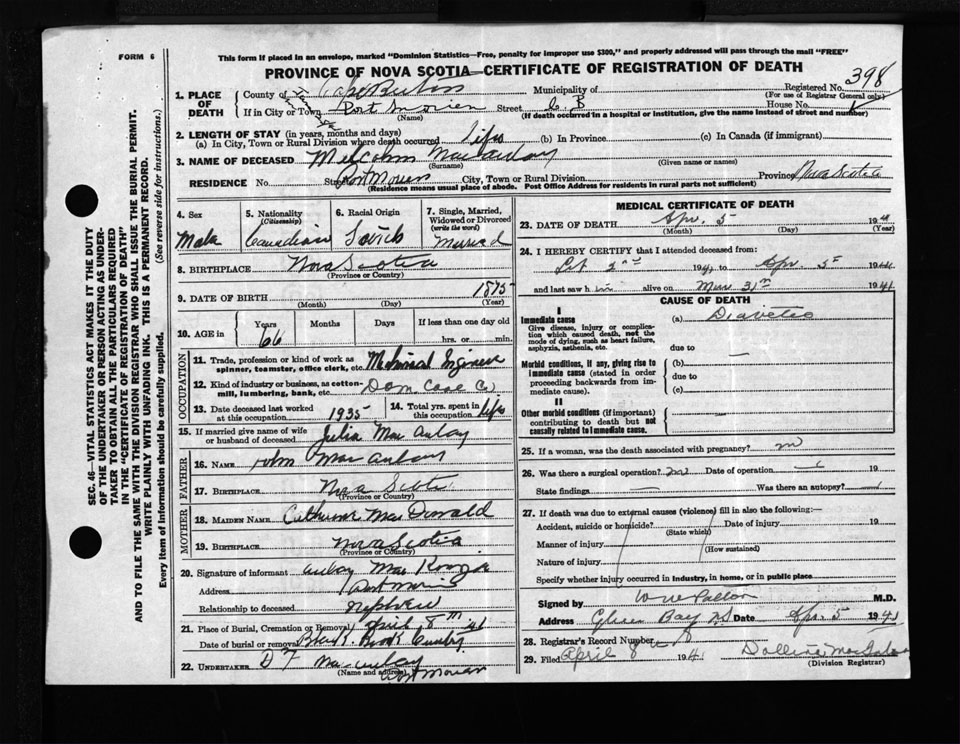 FORM 6
This form if placed in an envelope, marked "Dominion Statistics—Free, penalty for improper use $300," and properly addressed will pass through the mail "FREE"
PROVINCE OF NOVA SCOTIA—CERTIFICATE OF REGISTRATION OF DEATH
SEC. 46—VITAL STATISTICS ACT MAKES IT THE DUTY
OF THE UNDERTAKER OR PERSON ACTING AS UNDER-
TAKER TO OBTAIN ALL THE PARTICULARS REQUIRED
IN THE "CERTIFICATE OF REGISTRATION OF DEATH"
AND TO FILE THE SAME WITH THE DIVISION REGISTRAR WHO SHALL ISSUE THE BURIAL PERMIT.
WRITE PLAINLY WITH UNFADING INK. THIS IS A PERMANENT RECORD.
Every item of Information should be carefully supplied. (See reverse side for instructions.)
1. PLACE OF DEATH
County of Cape Breton Municipality of Registered No. 398
(For use of Registrar General only)
If in City or Town Port Morien Street C B House No.
(Name) (If death occurred in a hospital or institution, give the name instead of street and number)
2. LENGTH OF STAY (in years, months and days)
(a) In City, Town or Rural Division where death occurred Life (b) In Province (c) In Canada (if immigrant)
3. NAME OF DECEASED MacAulay
(Surname) (Given name or names)
RESIDENCE No. Street Port Morien City, Town or Rural Division Province Nova Scotia
(Residence means usual place of abode. Post Office Address for residents in rural parts not sufficient)
4. Sex
Male
5. Nationality
(Citizenship)
Canadian
6. Racial Origin
Scotch
7. Single, Married, Widowed or Divorced
(write the word)
Married
8. BIRTHPLACE Nova Scotia
(Province or Country)
9. DATE OF BIRTH 1875
(Month) (Day) (Year)
10. AGE in Years Months Days If less than one day old
66 hrs. or min.
OCCUPATION
11. Trade, profession or kind of work as
spinner, teamster, office clerk, etc. Engineer
12. Kind of industry or business, as cotton-
mill, lumbering, bank, etc. Dom Coal Co
13. Date deceased last worked
at this occupation 1935
14. Total yrs. spent in
this occupation Life
15. If married give name of wife
or husband of deceased Julia MacAulay
FATHER
16. NAME John MacAulay
17. BIRTHPLACE Nova Scotia
(Province or Country)
MOTHER
18. MAIDEN NAME Catherine MacDonald
19. BIRTHPLACE Nova Scotia
(Province or Country)
20. Signature of informant MacKenzie
Address Port Morien
Relationship to deceased Nephew
21. Place of Burial, Cremation or Removal April 8th 41
Date of burial or removal Black Brook Cemetery
22. UNDERTAKER D F MacAulay
(Name and address) Port Morien
MEDICAL CERTIFICATE OF DEATH
23. DATE OF DEATH Apr. 5 1941
(Month) (Day) (Year)
24. I HEREBY CERTIFY that I attended deceased from:
2nd 194 to Apr. 5th 1941
and last saw him alive on Mar 31st 1941
CAUSE OF DEATH
I
Immediate cause (a) Diavetes
Give disease, injury or complica-
tion which caused death, not the
mode of dying, such as heart failure,
asphyxia, asthenia, etc.
due to
Morbid conditions, if any, giving rise to
immediate cause (stated in order
proceeding backwards from im-
mediate cause).
(b)
due to
(c)
II
Other morbid conditions (if important)
contributing to death but not
causally related to immediate cause.
25. If a woman, was the death associated with pregnancy?
26. Was there a surgical operation? Date of operation 19
State findings Was there an autopsy?
27. If death was due to external causes (violence) fill in also the following:—
Accident, suicide or homicide? Date of injury 19
(State which)
Manner of injury
(How sustained)
Nature of injury
Specify whether injury occurred in industry, in home, or in public place
Signed by M.D.
Address Glace Bay N.S. Date Apr. 5 1941
28. Registrar's Record Number 8
29. Filed April 8 1941
(Division Registrar)